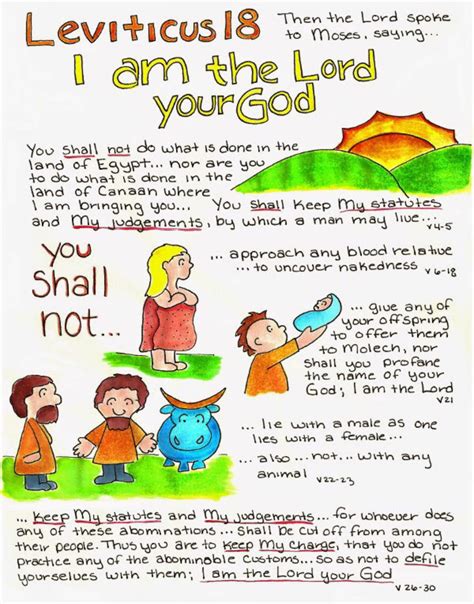 Leviticus 18
Then the Lord spoke
to Moses, saying...
I am the Lord
your God
You shall not do what is done in the
land of Egypt... nor are you
to do what is done in the
land of Canaan where
I am bringing you... You shall keep My statutes
and My judgements, by which a man may live...
v4-5
you
Shall
not...
... approach any blood relative
... to uncover nakedness v6-18
... give any of
your offspring
to offer them
to Molech, nor
shall you profane
the name of your
God; I am the Lord
v21
... lie with a male as one
lies with a female...
... also... not... with any
animal v22-23
... Keep My statutes and My judgements... for whoever does
any of these abominations... shall be cut off from among
their people. Thus you are to keep My charge, that you do not
practice any of the abominable customs... so as not to defile
yourselves with them; I am the Lord your God
v 26-30